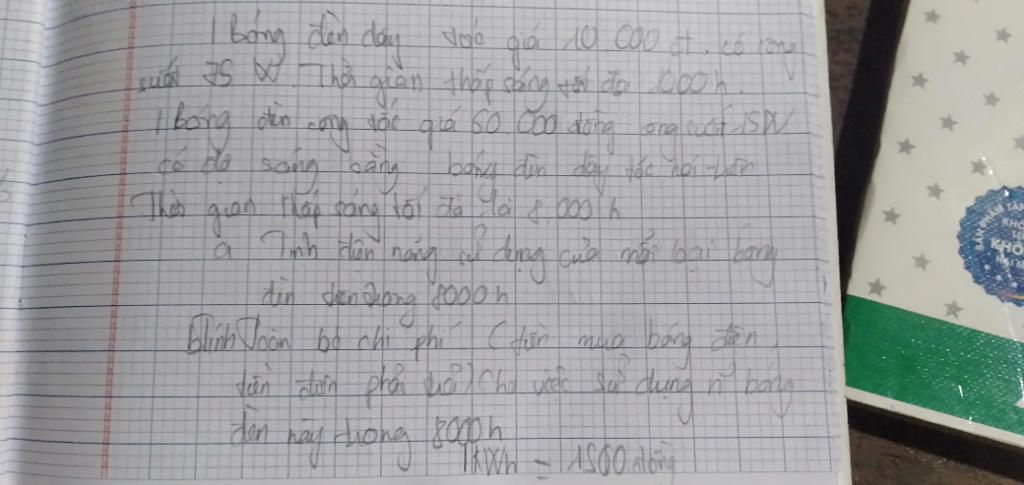 1 bóng đèn dây tóc giá 10 000 đ. có công
suất 75 W. Thời gian thắp sáng tối đa 1000 h.
1 bóng đèn compắc giá 60 000 đồng công suất 15W
có độ sáng bằng bóng đèn dây tóc nói trên
Thời gian thắp sáng tối đa là 8 000 h
a Tính điện năng sử dụng của mỗi loại bóng
đèn trên trong 8000 h
b Tính Toàn bộ chi phí (tiền mua bóng đèn,
tiền điện phải trả) cho việc sử dụng mỗi bóng
đèn này trong 8000 h
1kWh = 1500 đồng
KHÔ